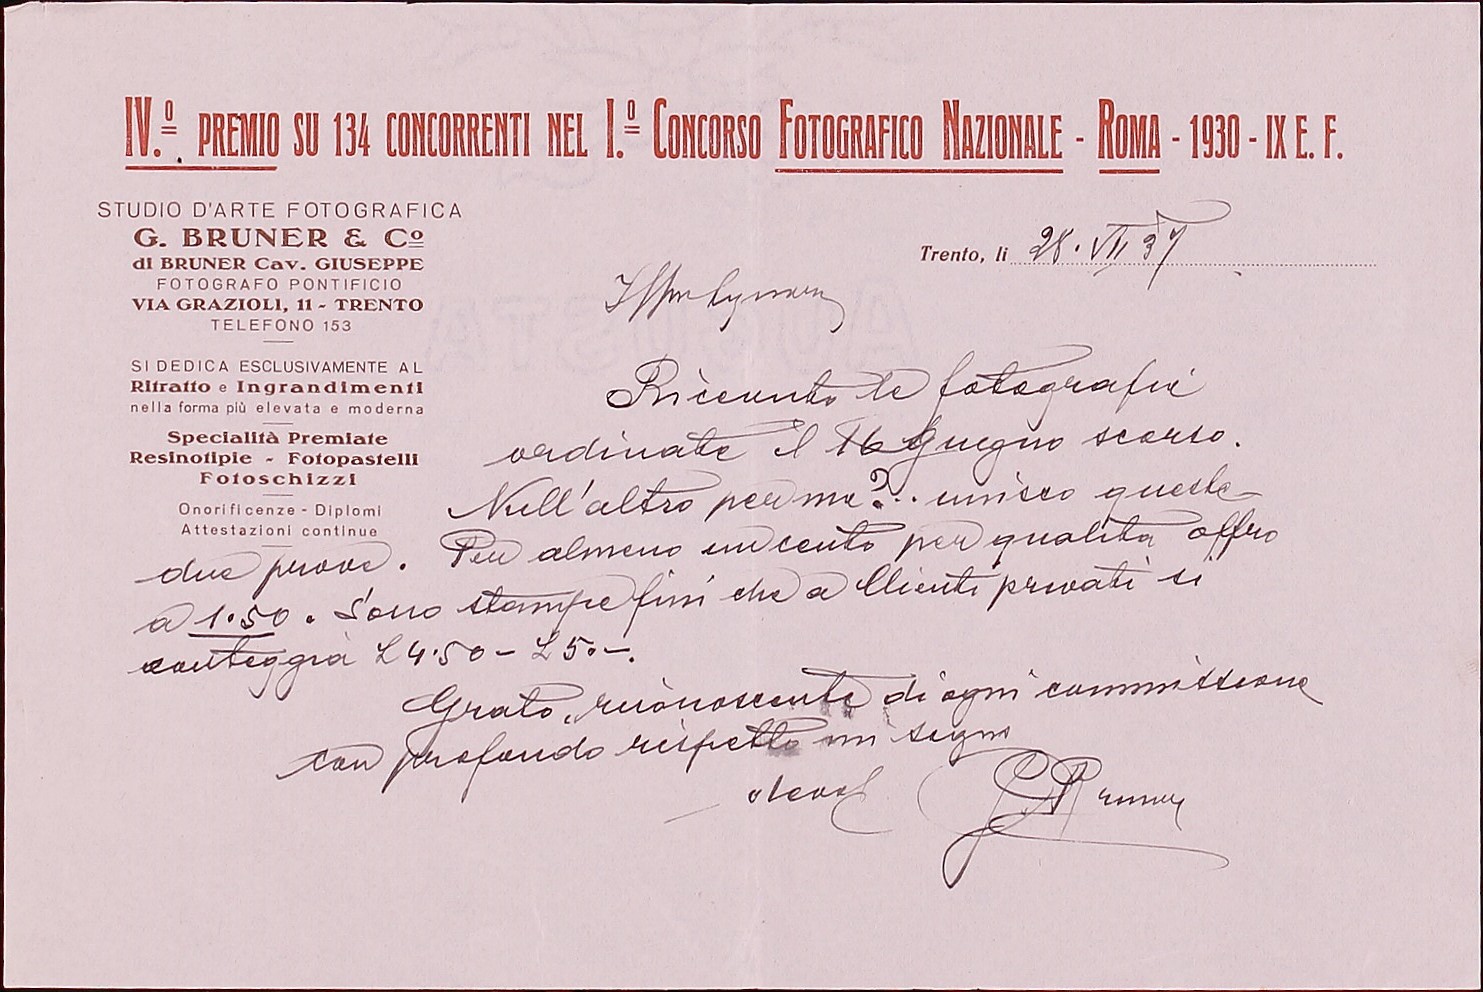 IV.º PREMIO SU 134 CONCORRENTI NEL I.º CONCORSO FOTOGRAFICO NAZIONALE - ROMA - 1930 - IX E. F.
STUDIO D'ARTE FOTOGRAFICA
G. BRUNER & Cº
di BRUNER Cav. GIUSEPPE
FOTOGRAFO PONTIFICIO
VIA GRAZIOLI, 11 - TRENTO
TELEFONO 153
SI DEDICA ESCLUSIVAMENTE AL
Ritratto e Ingrandimenti
nella forma più elevata e moderna
Specialità Premiate
Resinotipie - Fotopastelli
Fotoschizzi
Onorificenze - Diplomi
Attestazioni continue
Trento, li 28. VII 37
le fotografie
ordinate il 16 Giugno scorso.
Null'altro per me?.. unisco queste
due prove. Per almeno un cento per qualità offro
a 1.50. Sono stampe fini che a Clienti privati si
conteggia £ 4.50 - £ 5.-.
Grato, riconoscente di ogni commissione
con profondo rispetto mi segno
G Bruner